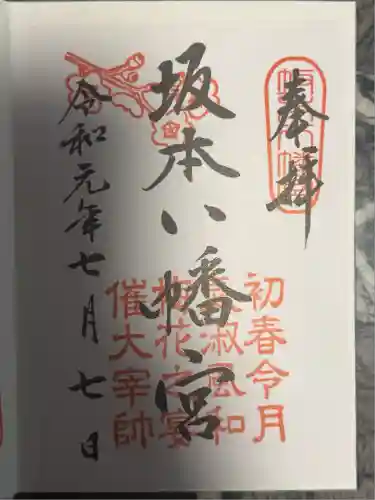 奉拝
坂本八幡宮
初春令月
氣淑風和
梅花之宴
催大宰帥
令和元年七月七日